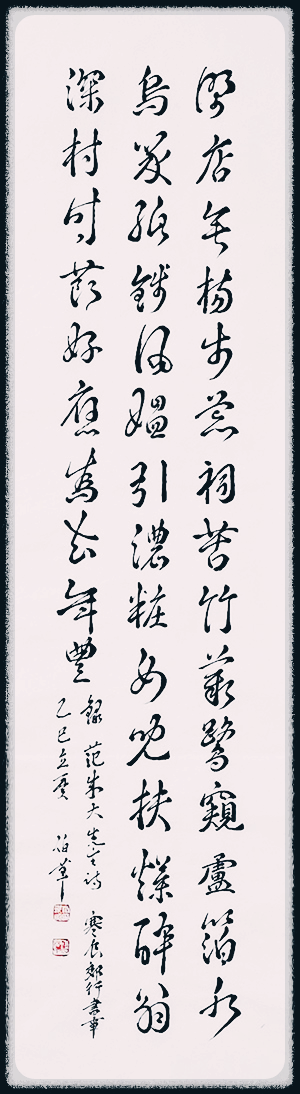 野店垂楊步荒祠苦竹叢鷺窺蘆箔水
烏啄紙錢風媼引濃粧女兒扶爛醉翁
深村時節好應為去年豐
錄范成大先生詩 寒食郊行書事
乙巳立夏